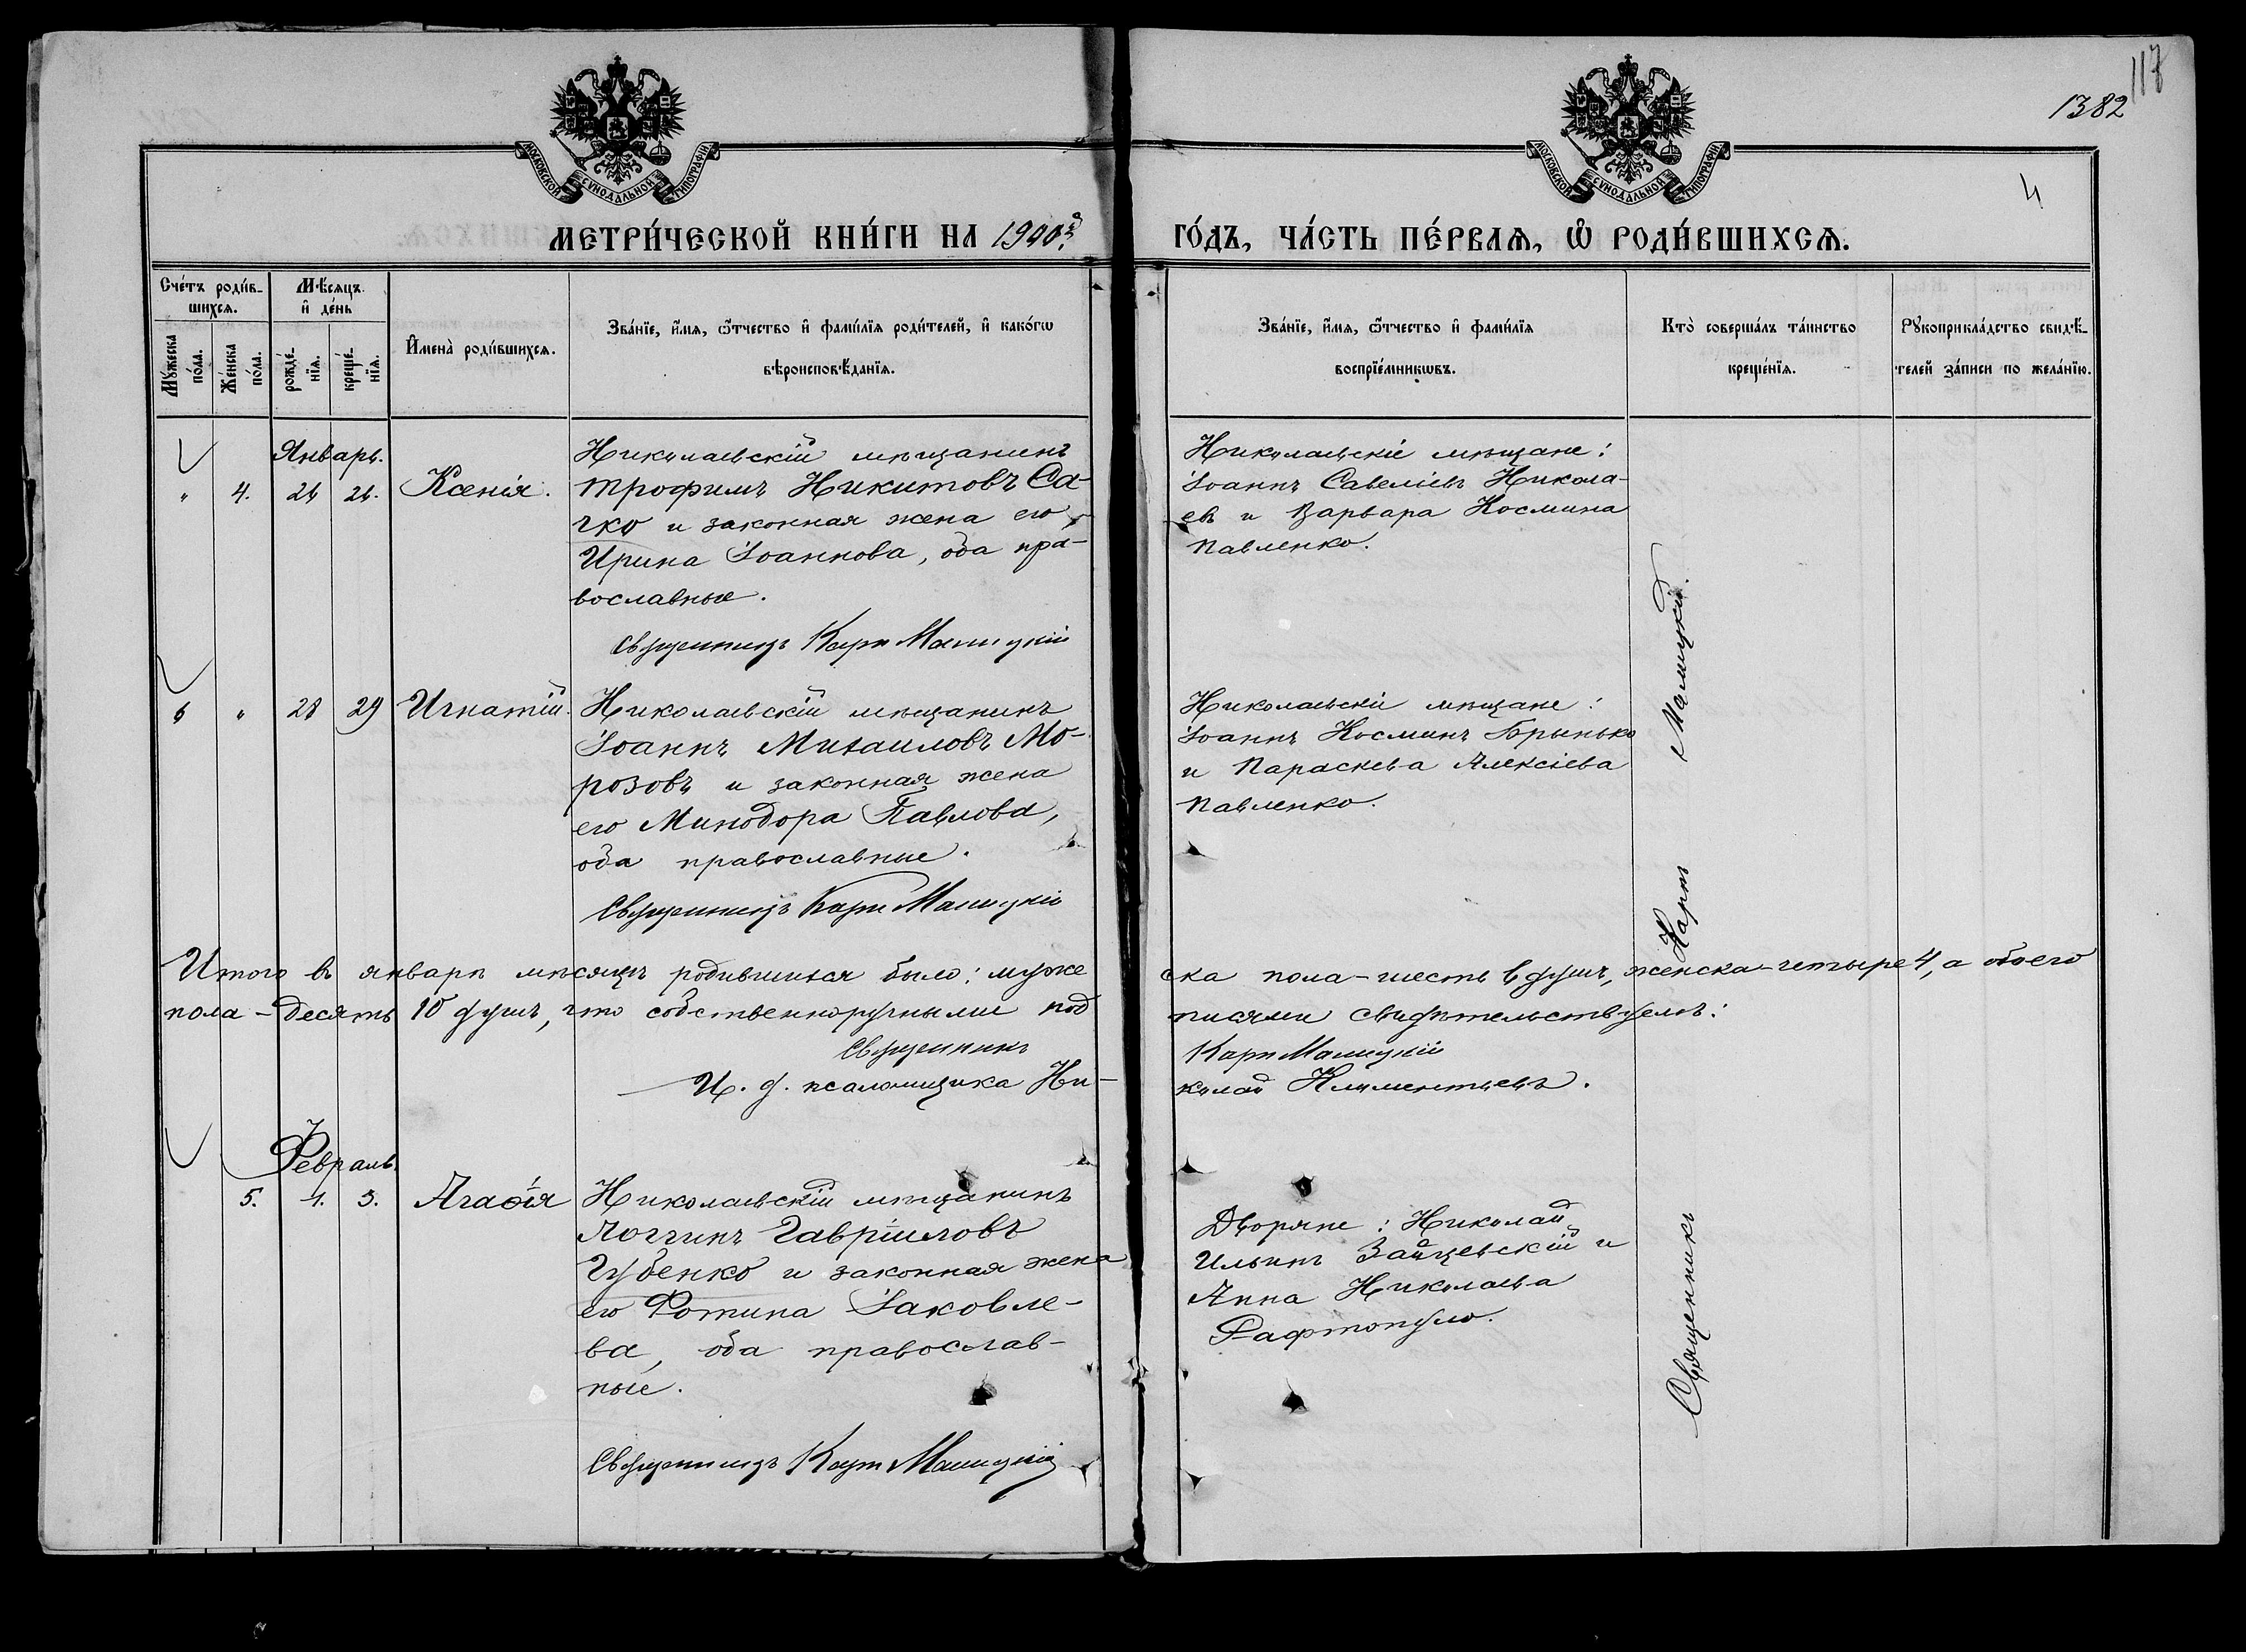 118
1382
4
МОСКОВСКОЙ СУНОДАЛЬНОЙ ТИПОГРАФІИ
МОСКОВСКОЙ СУНОДАЛЬНОЙ ТИПОГРАФІИ
МЕТРИ́ЧЕСКОЙ КНИ́ГИ НА 1900й
ГО́ДЪ, ЧА́СТЬ ПЕ́РВАѦ, Ѽ РОДИ́ВШИХСѦ.
Сче́тъ роди́в-
шихсѧ.
Мꙋ́жеска
по́ла.
Же́нска
по́ла.
Мѣ́сѧцъ
и҆ де́нь
рожде́-
нїѧ.
креще́-
нїѧ.
И҆мена̀ роди́вшихсѧ.
Зва́нїе, и҆́мѧ, ѻ҆́тчество и҆ фами́лїѧ роди́телей, и҆ како́гѡ
вѣроисповѣ́данїѧ.
Зва́нїе, и҆́мѧ, ѻ҆́тчество и҆ фами́лїѧ
воспрїе́мникѡвъ.
Кто̀ соверша́лъ та́инство
креще́нїѧ.
Рꙋкоприкла́дство свидѣ́-
телей за́писи по жела́нїю.
Январь.
" 4. 24 26. Ксенія.
Николаевскій мѣщанинъ
Трофимъ Никитовъ Са-
чко и законная жена его
Ирина Іоаннова, оба пра-
вославные.
Священникъ Карпъ Малицкій
Николаевскіе мѣщане:
Іоаннъ Савеліевъ Никола-
евъ и Варвара Космина
Павленко.
6 " 28 29 Игнатій.
Николаевскій мѣщанинъ
Іоаннъ Михаиловъ Мо-
розовъ и законная жена
его Минодора Павлова,
оба православные.
Священникъ Карпъ Малицкій
Николаевскіе мѣщане:
Іоаннъ Косминъ Брынько
и Параскева Алексіева
Павленко.
Итого въ январѣ мѣсяцѣ родившихся было: муже
ска пола - шесть 6 душъ, женска - четыре 4, а обоего
пола - десять 10 душъ, что собственноручными под
писями свидѣтельствуемъ:
Священникъ
Карпъ Малицкій
И. д. псаломщика Ни-
колай Климентьевъ.
Февраль.
5. 1. 3. Агафія
Николаевскій мѣщанинъ
Логгинъ Гавріиловъ
Губенко и законная жена
его Фотина Іаковле-
ва, оба православ-
ные.
Священникъ Карпъ Малицкій
Дворяне: Николай
Ильинъ Зайцевскій и
Анна Николаева
Рафтопуло.
Священникъ Карпъ Малицкій.